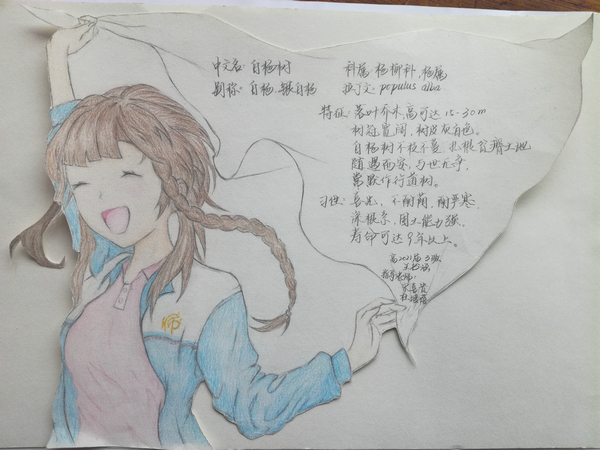 中文名：白杨树
科属：杨柳科，杨属
别称：白杨、银白杨
拉丁文：populus alba
特征：落叶乔木，高可达15-30m
树冠宽阔，树皮灰白色。
白杨树不枝不蔓，扎根贫瘠土地
随遇而安，与世无争，
常做行道树。
习性：喜光、不耐荫，耐旱寒
深根系，固土能力强，
寿命可达90年以上。
高2021届3班
指导老师：